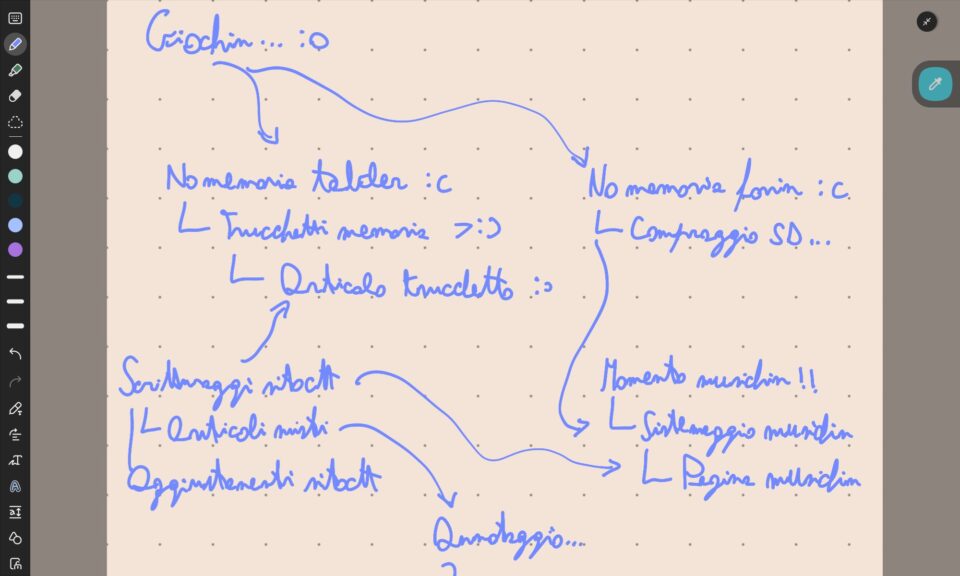 Giochin... :o
No memoria tabler :c
No memoria fonin :c
Trucchetti memoria >:)
Compraggio SD...
Articolo trucchetto :>
Scritturaggi sitoctt
Momento musichin !!
Articoli misti
Sistemaggio musichin
Aggiustamenti sitoctt
Pagina musichin
Annotaggio...